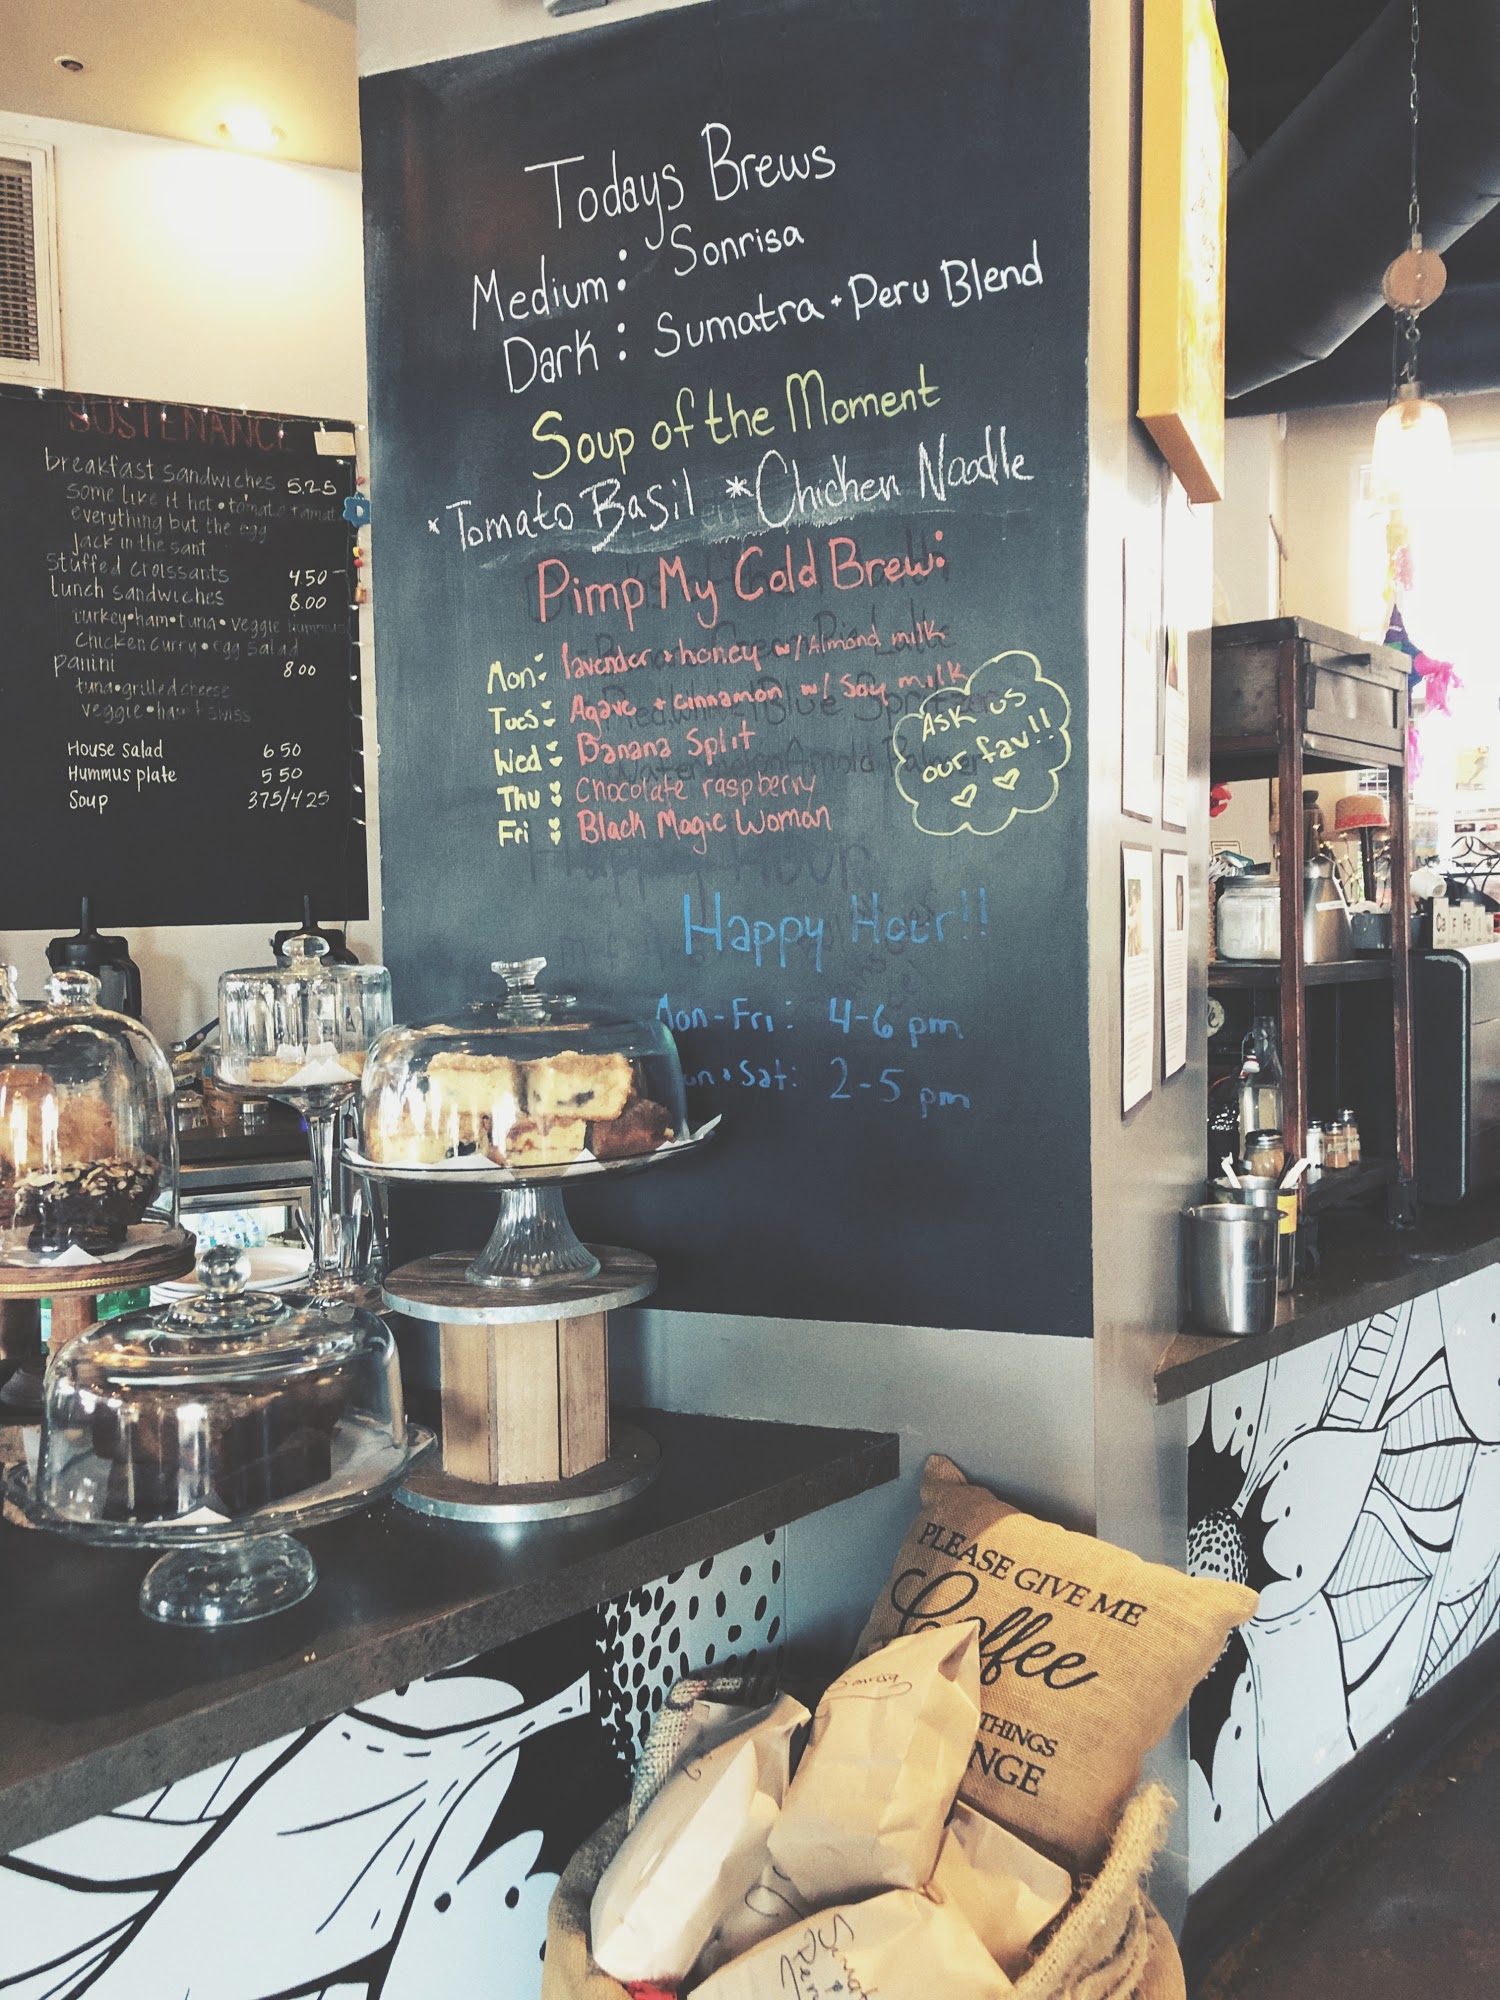 Todays Brews
Medium: Sonrisa
Dark: Sumatra + Peru Blend
Soup of the Moment
*Tomato Basil *Chicken Noodle
Pimp My Cold Brew:
Mon: lavender + honey w/ Almond milk
Tues: Agave + cinnamon w/ Soy milk
Wed: Banana Split
Thu: Chocolate raspberry
Fri: Black Magic Woman
Ask us
our fav!!
Happy Hour!!
Mon-Fri: 4-6 pm
Sat: 2-5 pm
SUSTENANCE
breakfast sandwiches 5.25
some like it hot • tomato
everything but the egg
jack in the sant
stuffed croissants 4.50
lunch sandwiches 8.00
turkey • ham • tuna • veggie hummus
chicken curry • egg salad
panini 8.00
tuna • grilled cheese
veggie • ham + swiss
House salad 6 50
Hummus plate 5 50
Soup 375/4 25
PLEASE GIVE ME
Coffee
THINGS
NGE
Sonrisa
Ca F Fe